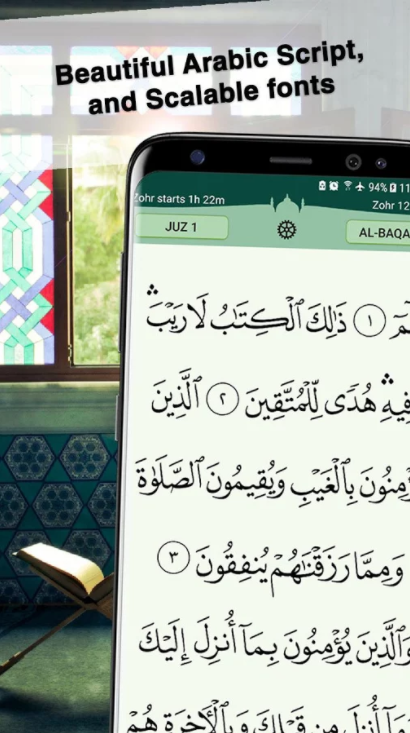 Beautiful Arabic Script,
and Scalable fonts
94% 11
Zohr starts 1h 22m
Zohr 12
JUZ 1
AL-BAQA
١ ذَٰلِكَ ٱلْكِتَٰبُ لَا رَيْبَ ۛ
فِيهِ ۛ هُدًى لِّلْمُتَّقِينَ ٢ ٱلَّذِينَ
بِٱلْغَيْبِ وَيُقِيمُونَ ٱلصَّلَوٰةَ
وَمِمَّا رَزَقْنَٰهُمْ يُنفِقُونَ ٣
وَٱلَّذِينَ يُؤْمِنُونَ بِمَآ أُنزِلَ إِلَيْكَ
أُنزِلَ مِن قَبْلِكَ وَبِٱلْءَاخِرَةِ هُمْ